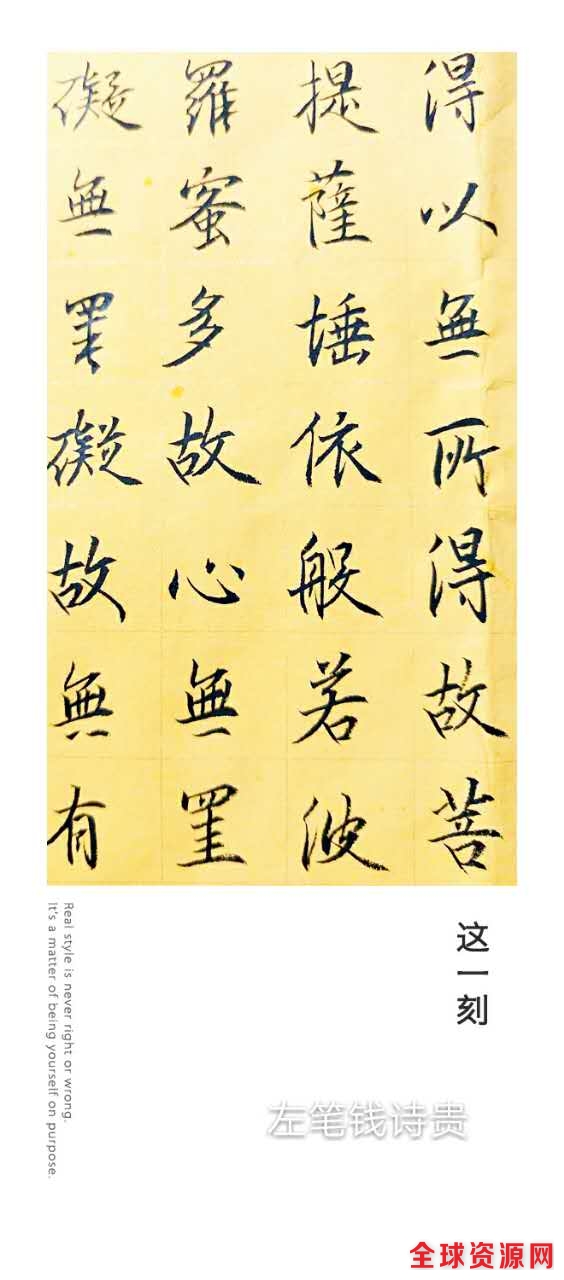 得以無所得故菩
提薩埵依般若波
羅蜜多故心無罣
礙無罣礙故無有
这一刻
Real style is never right or wrong.
It's a matter of being yourself on purpose.
左笔钱诗贵
全球资源网